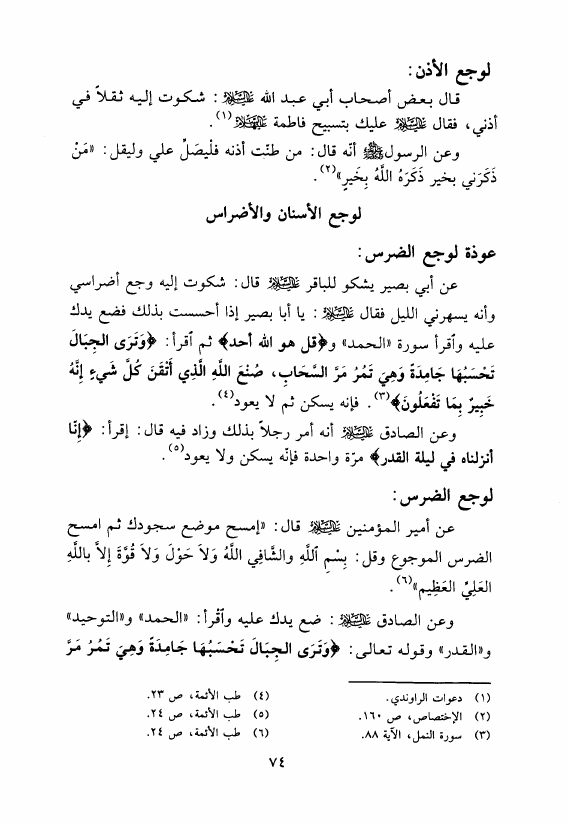 لوجع الأذن:
قال بعض أصحاب أبي عبد الله عليه السلام: شكوت إليه ثقلاً في
أذني، فقال عليه السلام عليك بتسبيح فاطمة عليها السلام(١).
وعن الرسول ﷺ أنّه قال: من طنّت أذنه فلْيصَلِّ علي وليقل: «مَنْ
ذَكَرَني بخير ذَكَرَهُ اللَّهُ بِخَيرٍ»(٢).
لوجع الأسنان والأضراس
عوذة لوجع الضرس:
عن أبي بصير يشكو للباقر عليه السلام قال: شكوت إليه وجع أضراسي
وأنه يسهرني الليل فقال عليه السلام: يا أبا بصير إذا أحسست بذلك فضع يدك
عليه وٱقرأ سورة «الحمد» و﴿قل هو الله أحد﴾ ثم ٱقرأ: ﴿وَتَرى الجِبَالَ
تَحْسَبُهَا جَامِدَةً وَهِيَ تَمُرُ مَرَّ السَّحَابِ، صُنْعَ اللَّهِ الَّذِي أَتْقَنَ كُلَّ شَيءٍ إِنَّهُ
خَبِيرٌ بِمَا تَفْعَلُونَ﴾(٣). فإنه يسكن ثم لا يعود(٤).
وعن الصادق عليه السلام أنه أمر رجلاً بذلك وزاد فيه قال: إقرأ: ﴿إنّا
أنزلناه في ليلة القدر﴾ مرّة واحدة فإنّه يسكن ولا يعود(٥).
لوجع الضرس:
عن أمير المؤمنين عليه السلام قال: «إمسح موضع سجودك ثم امسح
الضرس الموجوع وقل: بِسْمِ ٱللَّهِ والشَّافِي اللَّهُ وَلاَ حَوْلَ وَلاَ قُوَّةَ إلاَّ باللَّهِ
العَلِيِّ العَظِيم»(٦).
وعن الصادق عليه السلام: ضع يدك عليه وٱقْرأ: «الحمد» و«التوحيد»
و«القدر» وقوله تعالى: ﴿وَتَرى الجِبَالَ تَحْسَبُهَا جَامِدَةً وَهِيَ تَمُرُ مَرَّ
(١) دعوات الراوندي.
(٢) الإختصاص، ص ١٦٠.
(٣) سورة النمل، الآية ٨٨.
(٤) طب الأئمة، ص ٢٣.
(٥) طب الأئمة، ص ٢٤.
(٦) طب الأئمة، ص ٢٤.
٧٤